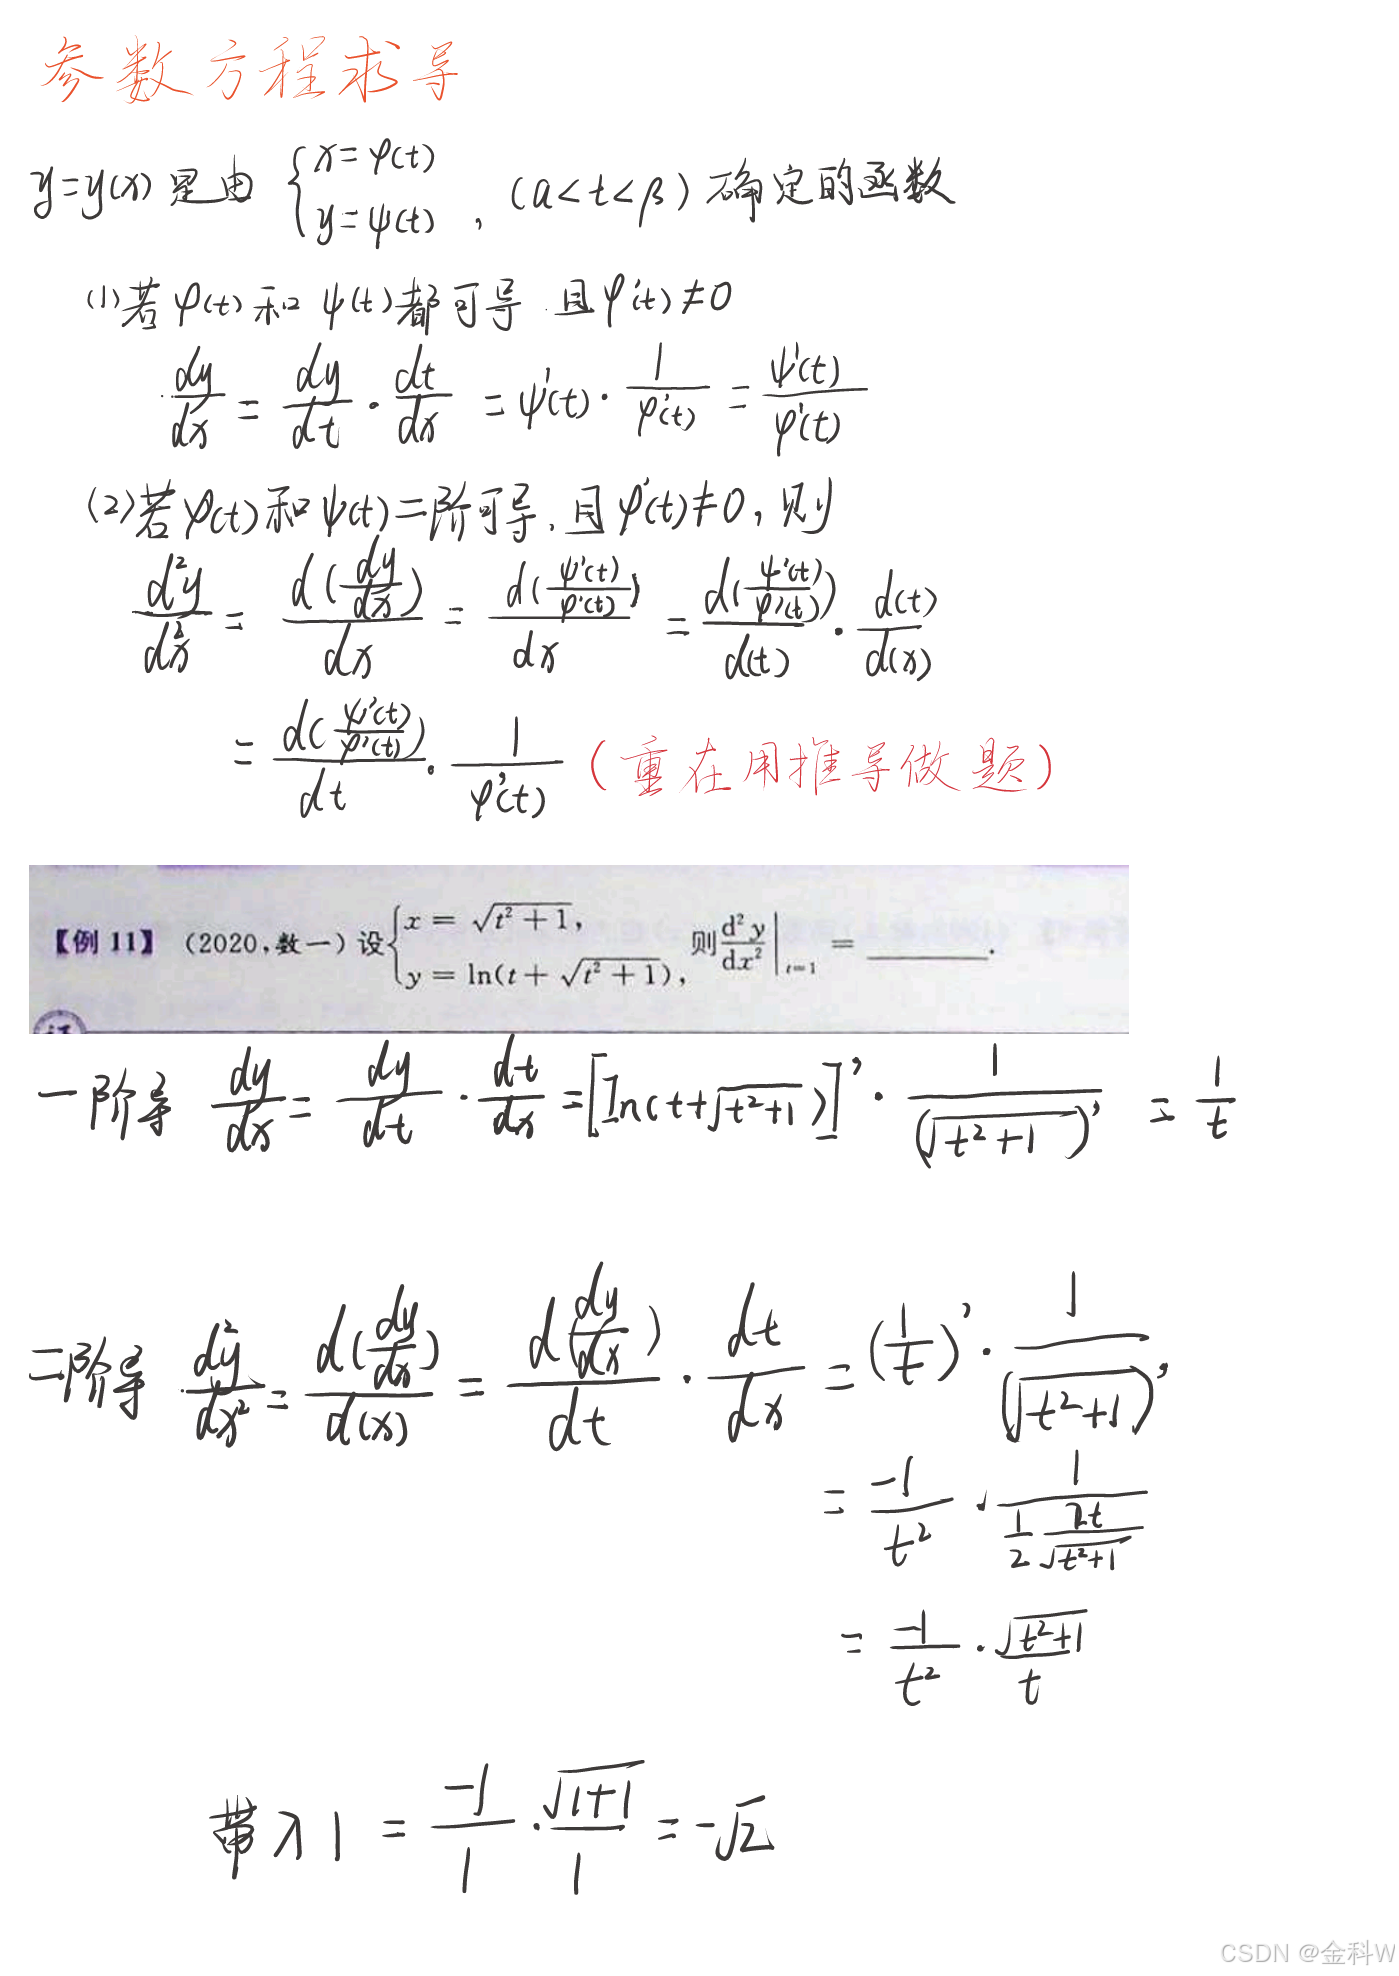 参数方程求导
y=y(x)是由 { x=φ(t)
y=ψ(t) , (a<t<β) 确定的函数
(1)若φ(t)和ψ(t)都可导.且φ'(t)≠0
dy/dx = dy/dt · dt/dx = ψ'(t) · 1/φ'(t) = ψ'(t)/φ'(t)
(2)若φ(t)和ψ(t)二阶可导,且φ'(t)≠0,则
d²y/dx² = d(dy/dx)/dx = d(ψ'(t)/φ'(t))/dx = d(ψ'(t)/φ'(t))/d(t) · d(t)/d(x)
= d(ψ'(t)/φ'(t))/dt · 1/φ'(t) (重在用推导做题)
【例 11】(2020,数一)设 { x = √(t²+1),
y = ln(t+√(t²+1)), 则 d²y/dx² |t=1 = ______.
一阶导 dy/dx = dy/dt · dt/dx = [ln(t+√(t²+1))]' · 1/(√(t²+1))' = 1/t
二阶导 d²y/dx² = d(dy/dx)/d(x) = d(dy/dx)/dt · dt/dx = (1/t)' · 1/(√(t²+1))'
= -1/t² · 1/(1/2 · 2t/√(t²+1))
= -1/t² · √(t²+1)/t
带入1 = -1/1 · √(1+1)/1 = -√2
CSDN @金科W